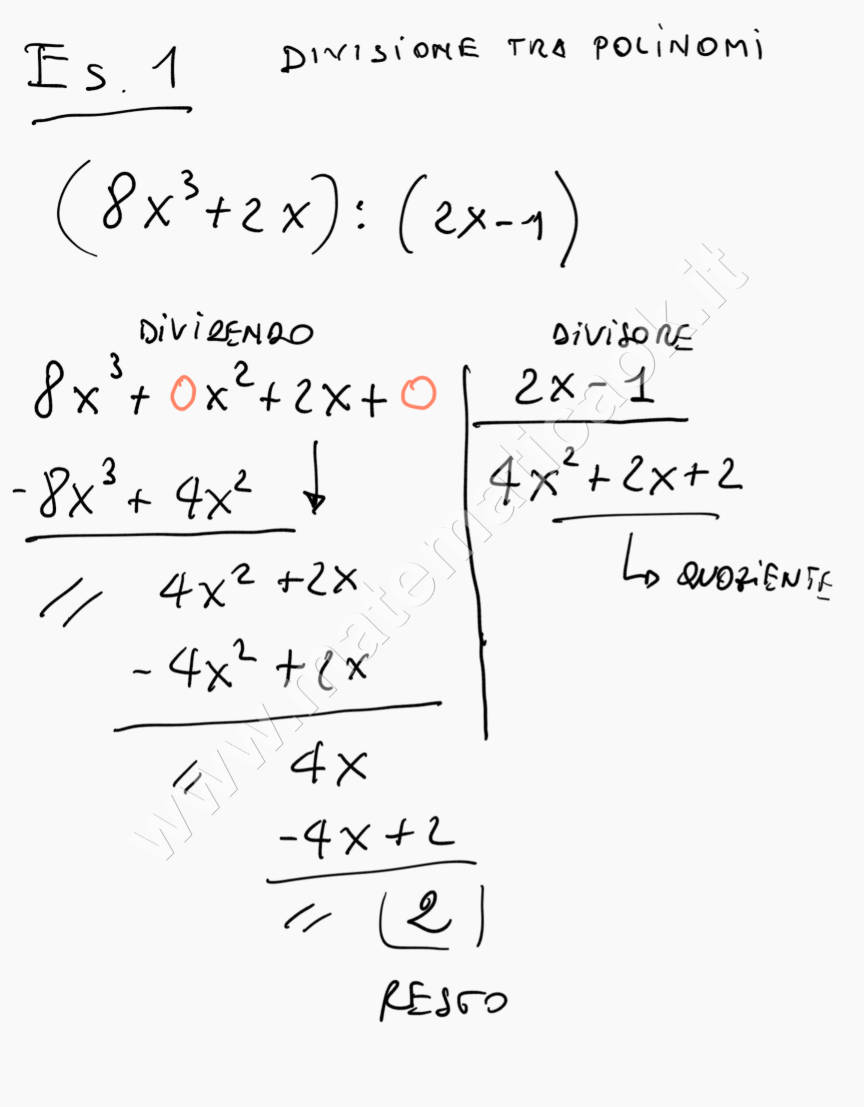 Es. 1 DIVISIONE TRA POLINOMI
(8x³+2x):(2x-1)
DIVIDENDO DIVISORE
8x³+0x²+2x+0 2x-1
-8x³+4x² 4x²+2x+2
// 4x²+2x ↳ QUOZIENTE
-4x²+2x
// 4x
-4x+2
// 2
RESTO
www.matematicaok.it